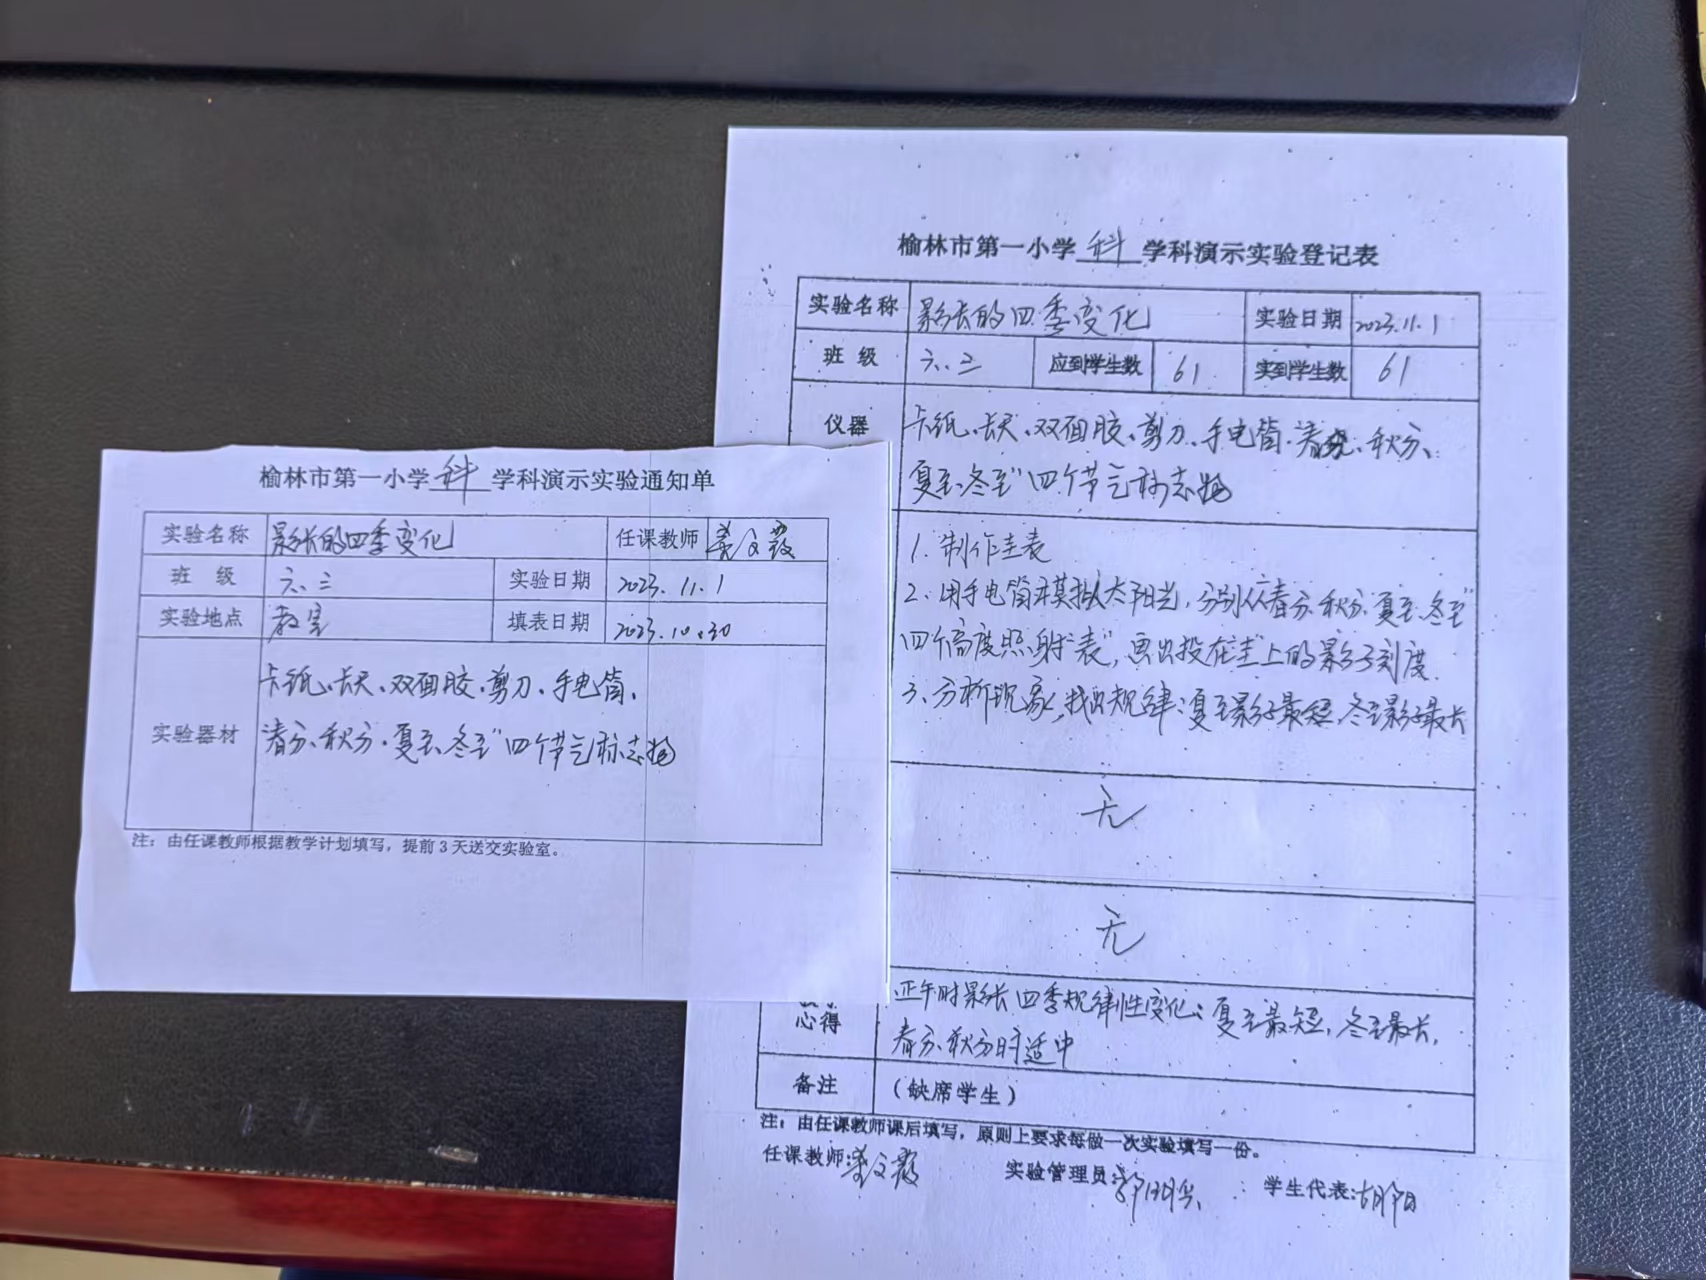 榆林市第一小学 科 学科演示实验通知单
实验名称 影长的四季变化 任课教师
班 级 六.三 实验日期 2023.11.1
实验地点 教室 填表日期 2023.10.30
实验器材
卡纸、长尺、双面胶、剪刀、手电筒、
"春分、秋分、夏至、冬至"四个节气标志物
注：由任课教师根据教学计划填写，提前 3 天送交实验室。
榆林市第一小学 科 学科演示实验登记表
实验名称 影长的四季变化 实验日期 2023.11.1
班 级 六.三 应到学生数 61 实到学生数 61
仪器
卡纸、长尺、双面胶、剪刀、手电筒、秋分、
夏至、冬至"四个节气标志物
1. 制作圭表
2. 用手电筒来模拟太阳光，分别从"春分、秋分、夏至、冬至"
四个高度照射"表"，画出投在"圭"上的影子刻度.
3、分析现象，找出规律：夏至影子最短，冬至影子最长
无
无
心得
正午时影长四季规律性变化：夏至最短，冬至最长，
春分、秋分时适中
备注 （缺席学生）
注：由任课教师课后填写，原则上要求每做一次实验填写一份。
任课教师： 实验管理员： 学生代表：